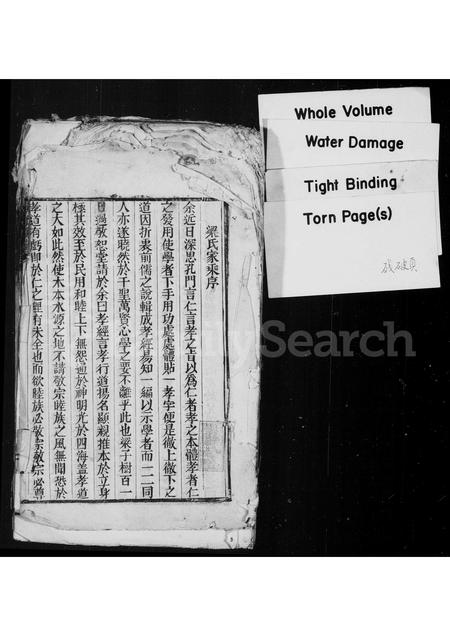 Whole Volume
Water Damage
Tight Binding
Torn Page(s)
残破頁
梁氏家乘序
余近日深思孔門言仁言孝之旨以為仁者孝之本體孝者仁
之發用使學者下手用功處處體貼一孝字便是徹上徹下之
道因折衷前儒之說輯成孝經易知一編以示學者而一二同
人亦遂曉然於千里萬賢心學之要不離乎此也梁子樹百一
日過敬恕堂請於余曰孝經言孝行道揚名顯親推本於立身
極其效至於民用和睦上下無怨通於神明光於四海蓋孝道
之大如此然使木本水源之地不講敬宗睦族之風無聞恐於
孝道有虧即於仁之理有未全也而欲睦族必敬宗敬宗必尊
ilySearch